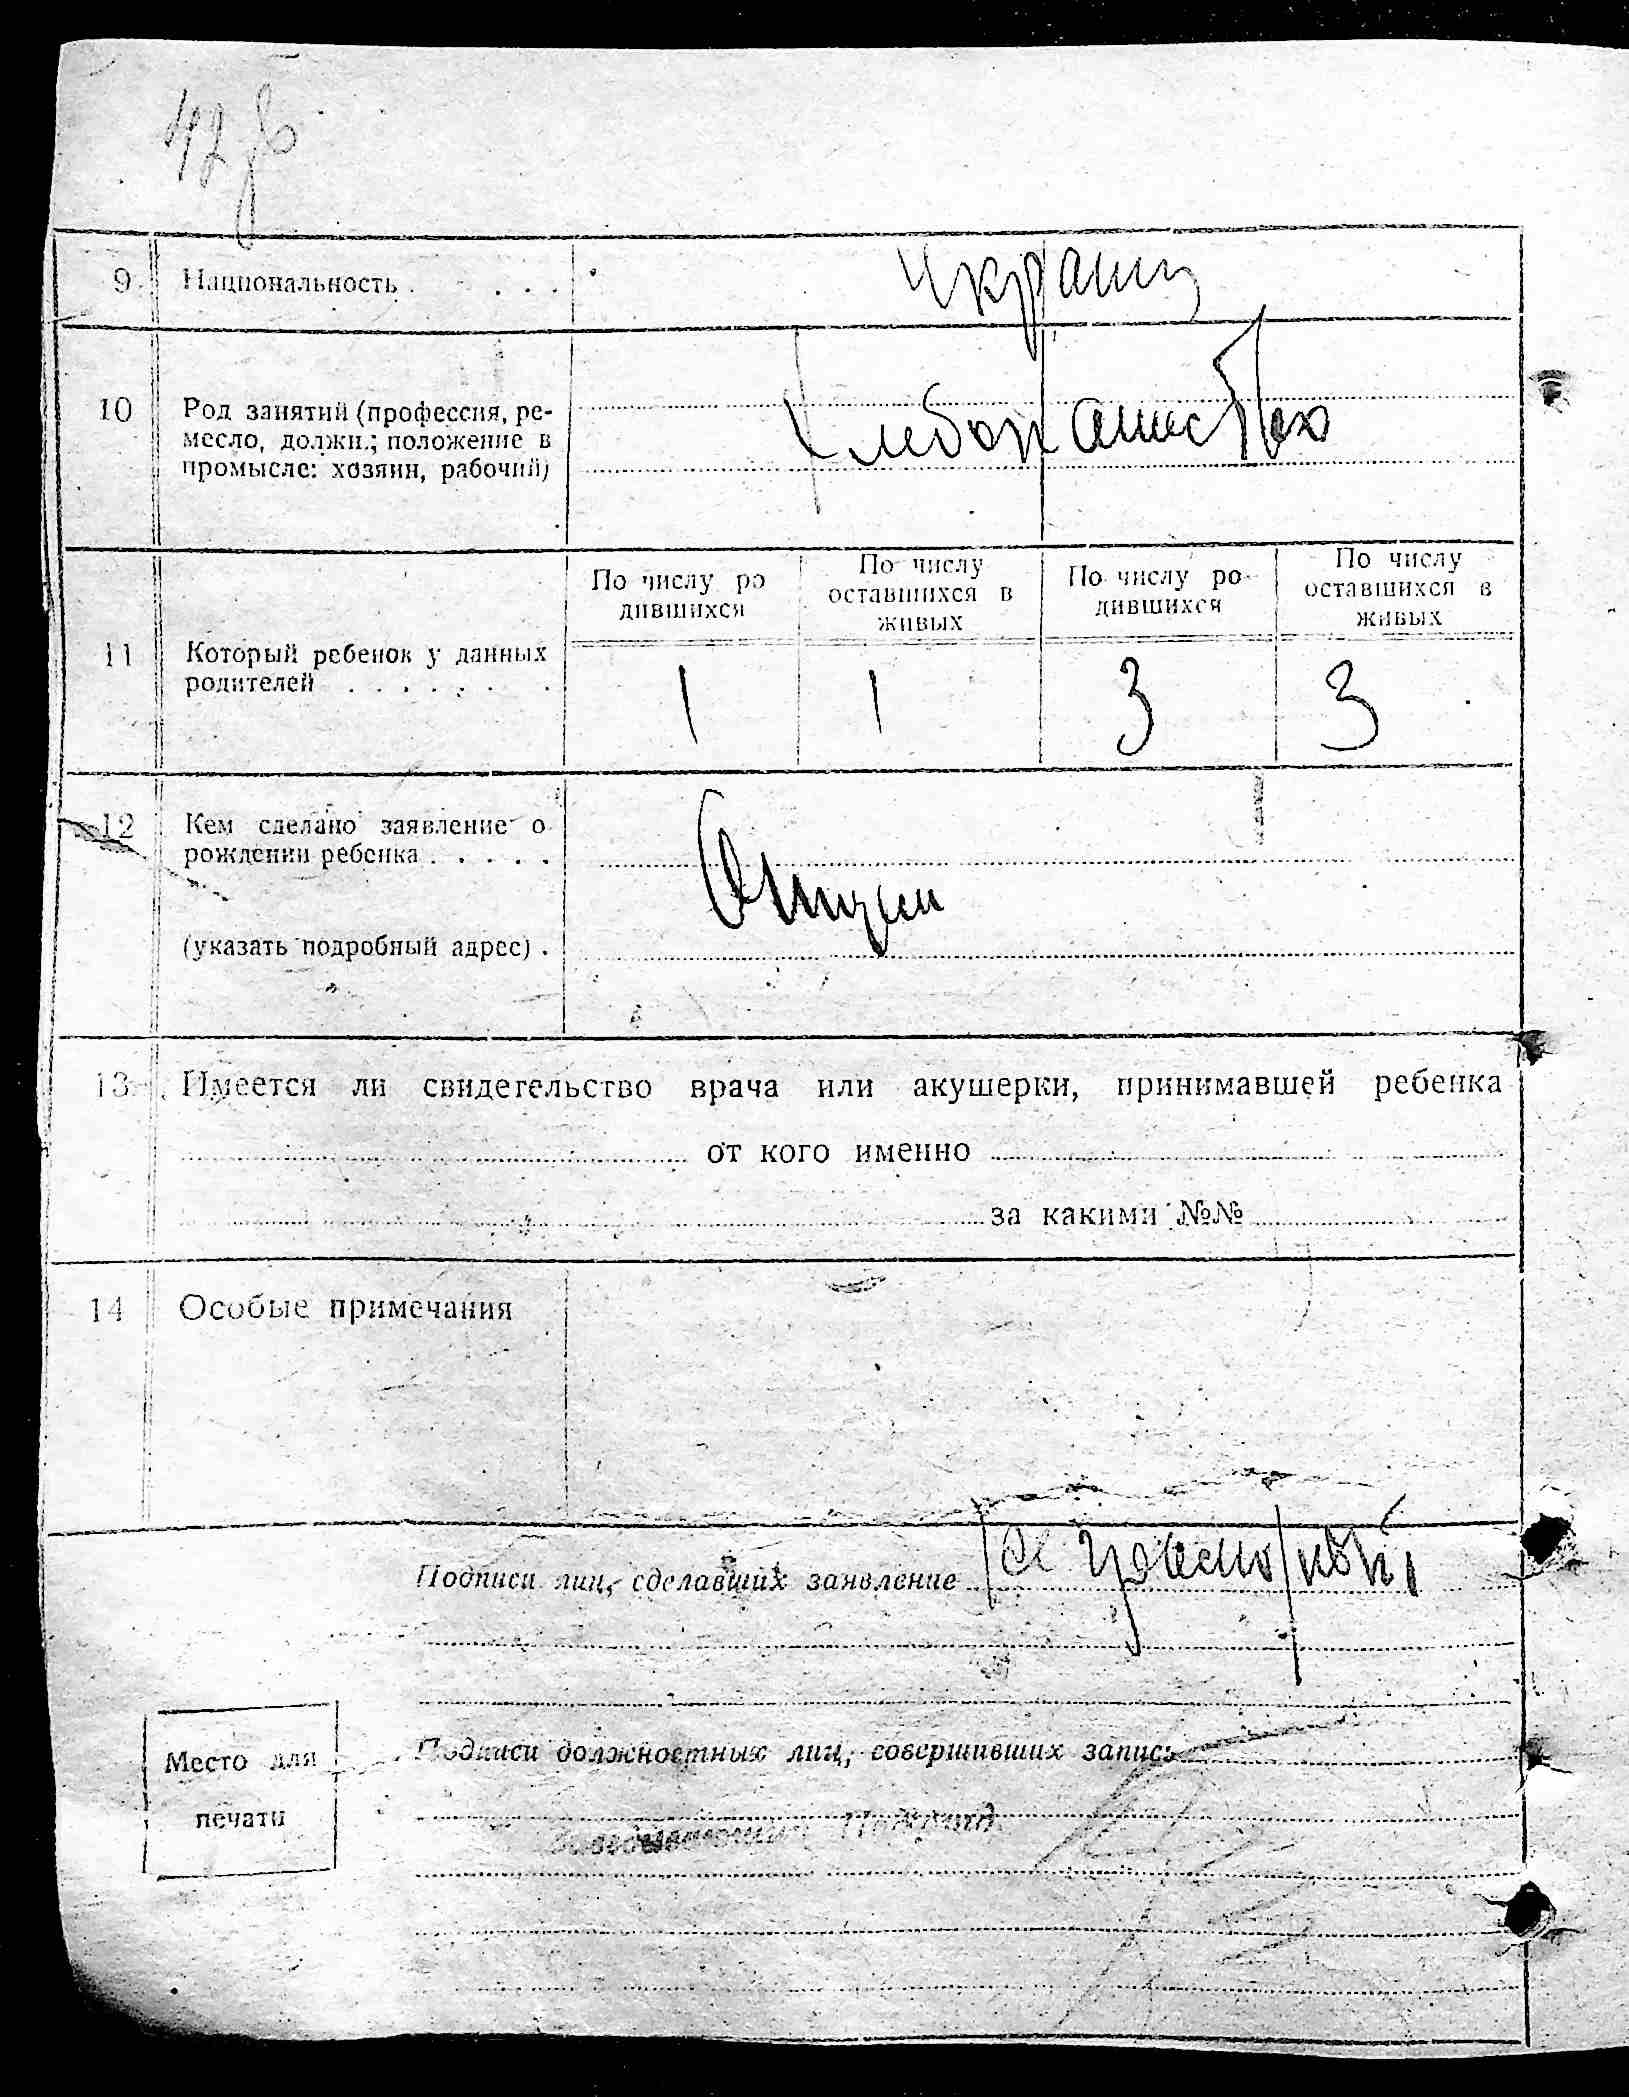 42
9 Национальность . . . . Украин
10 Род занятий (профессия, ре-
месло, должн.; положение в
промысле: хозяин, рабочий)
Хлебопашество
По числу ро
дившихся
По числу
оставшихся в
живых
По числу ро-
дившихся
По числу
оставшихся в
живых
11 Который ребенок у данных
родителей . . . . . . .
1 1 3 3
12 Кем сделано заявление о
рождении ребенка . . . . .
Отцем
(указать подробный адрес) .
13 Имеется ли свидетельство врача или акушерки, принимавшей ребенка
от кого именно
за какими №№
14 Особые примечания
Подписи лиц, сделавших заявление
Место для
печати
Подписи должностных лиц, совершивших запись